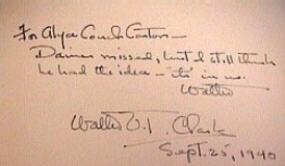 For Alyce Conch Cantom—
missed, but I still think
he had the idea— "its" in us.
Walter
Walter V. T. Clark
Sept. 25, 1940